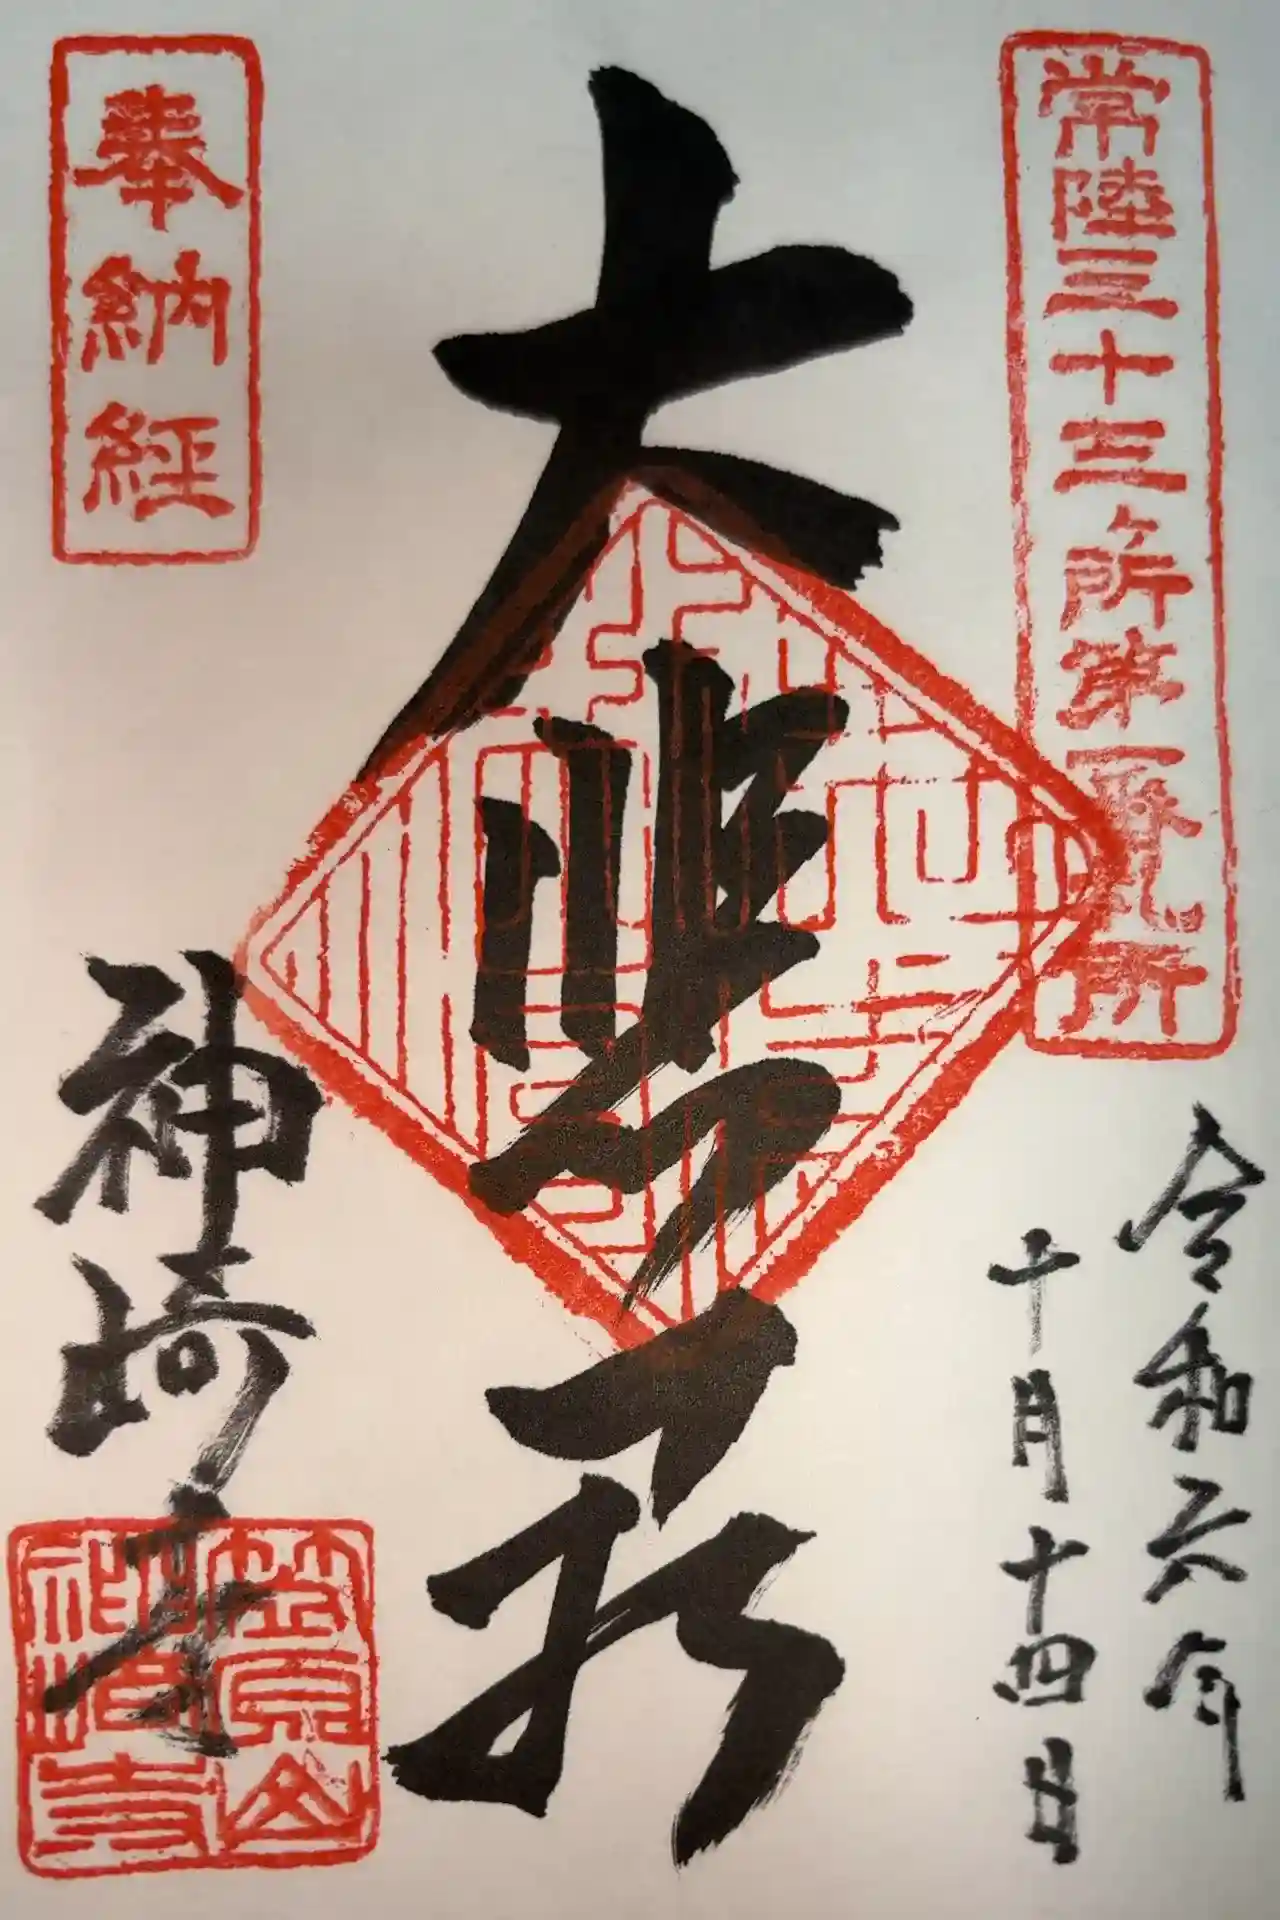 常陸三十三所第一番札所
令和六年
十月十四日
大悲殿
奉納経
神崎寺
笠原山
神崎寺